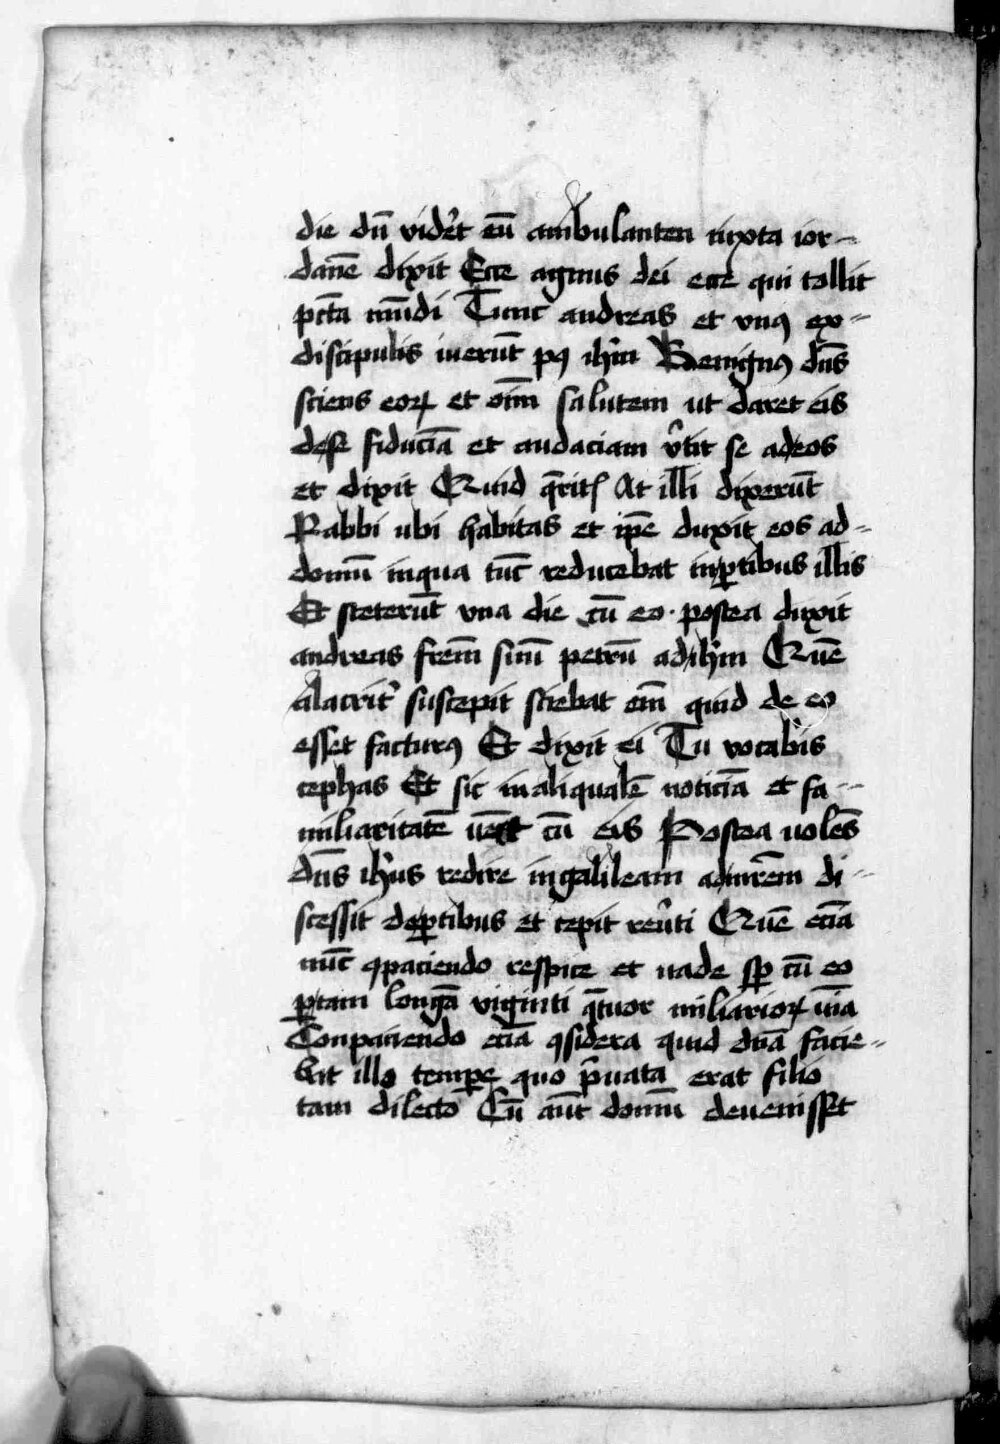 die dū vidēt eū ambulantem iuxta ior=
danē dixit Ecce agnus dei ecce qui tollit
pctā mūdi Tunc andreas et vnꝯ ex=
discipulis iuerūt pꝯ ih̄m Benignꝯ dn̄s
sciens eoꝝ et oīm salutem ut daret eis
de se fiduciā et audaciam v̄tit se ad eos
et dixit Quid q̄ritꝭ At illi dixerūt
Rabbi ubi habitas et ip̄e duxit eos ad=
domū in qua tūc reducebat in ꝑtibus illis
Et steterūt vna die cū eo · postea duxit
andreas frēm suū petrū ad ih̄m Quē
alacrit̄ suscepit sciebat em̄ quid de eo
esset facturꝯ Et dixit ei Tu vocab̄is
cephas Et sic in aliqualē noticiā et fa=
miliaritatē uēit cū eis Postea uolēs
dn̄s ih̄us redire in galileam ad mr̄em di=
scessit de ꝑtibus et cepit reūti Quē eciā
nūc ꝯpaciendo respice et uade sꝑ cū eo
ꝑ tam longā viginti q̄tuor miliarioꝝ uiā
Conpaciendo eciā ꝯsidera quid dn̄a facie=
bat illo tempore quo p̄uata erat filio
tam dilecto Cū aūt domū deuenisset